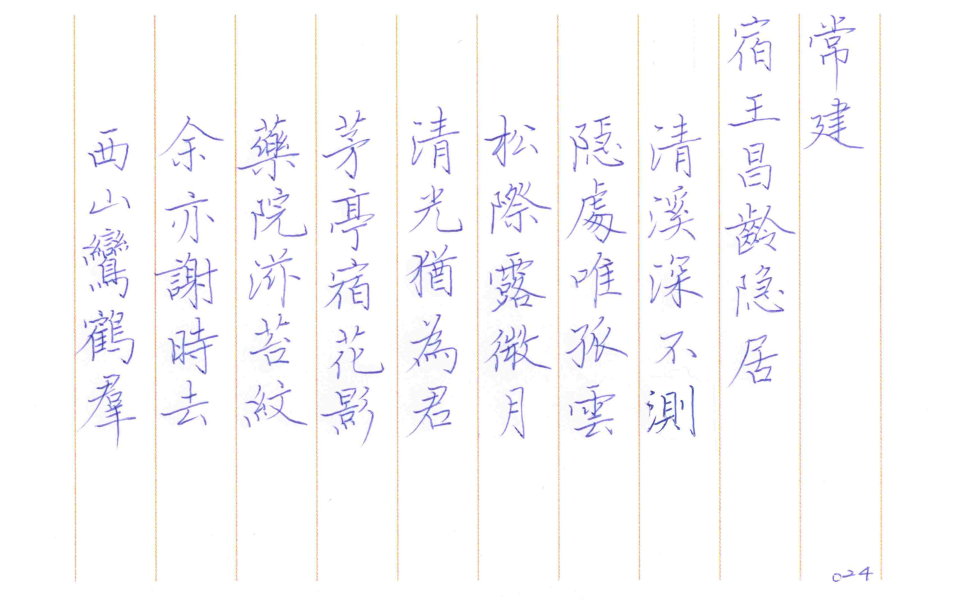 常建
宿王昌齡隱居
清溪深不測
隱處唯孤雲
松際露微月
清光猶為君
茅亭宿花影
藥院滋苔紋
余亦謝時去
西山鸞鶴羣
024